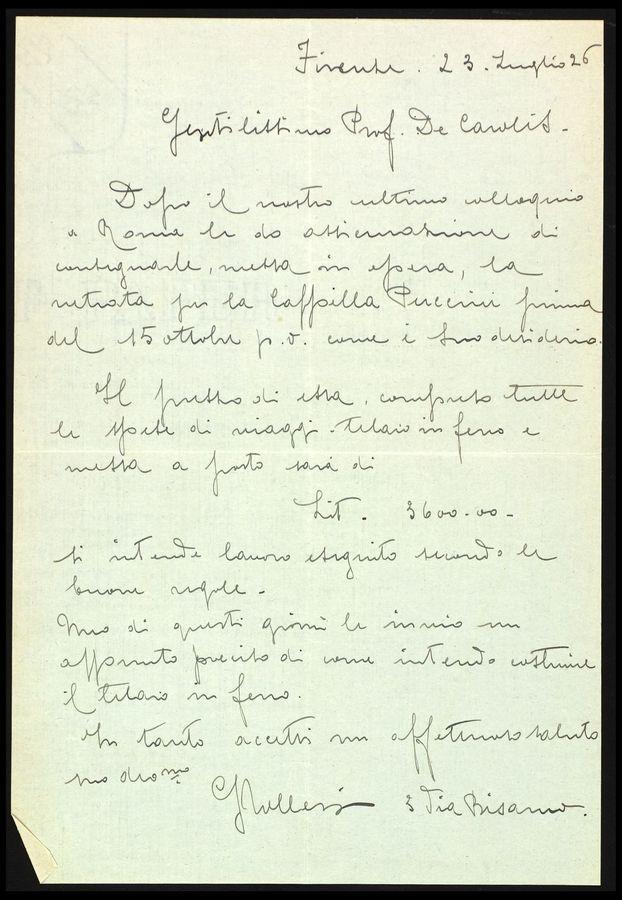 Firenze . 23. Luglio 26
Gentilissimo Prof. De Carolis -
Dopo il nostro ultimo colloquio
a Roma le do assicurazione di
consegnarle, messa in opera, la
vetrata per la Cappilla Puccini prima
del 15 ottobre p.v. come è Suo desiderio.
Il prezzo di essa, compreso tutte
le spese di viaggi - telaio in ferro e
messa a posto sarà di
Lit. 3600.00 -
si intende lavoro eseguito secondo le
buone regole -
Uno di questi giorni le invio un
appunto preciso di come intendo costruire
il telaio in ferro.
In tanto accetti un affettuoso saluto
suo dev mo
3 Via Bisarno.